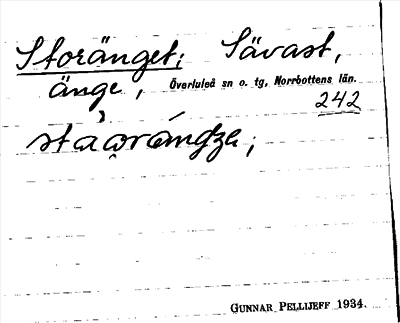 Storänget; Sävast,
änge, Överluleå sn o. tg, Norrbottens län.
242
GUNNAR PELLIJEFF 1934.